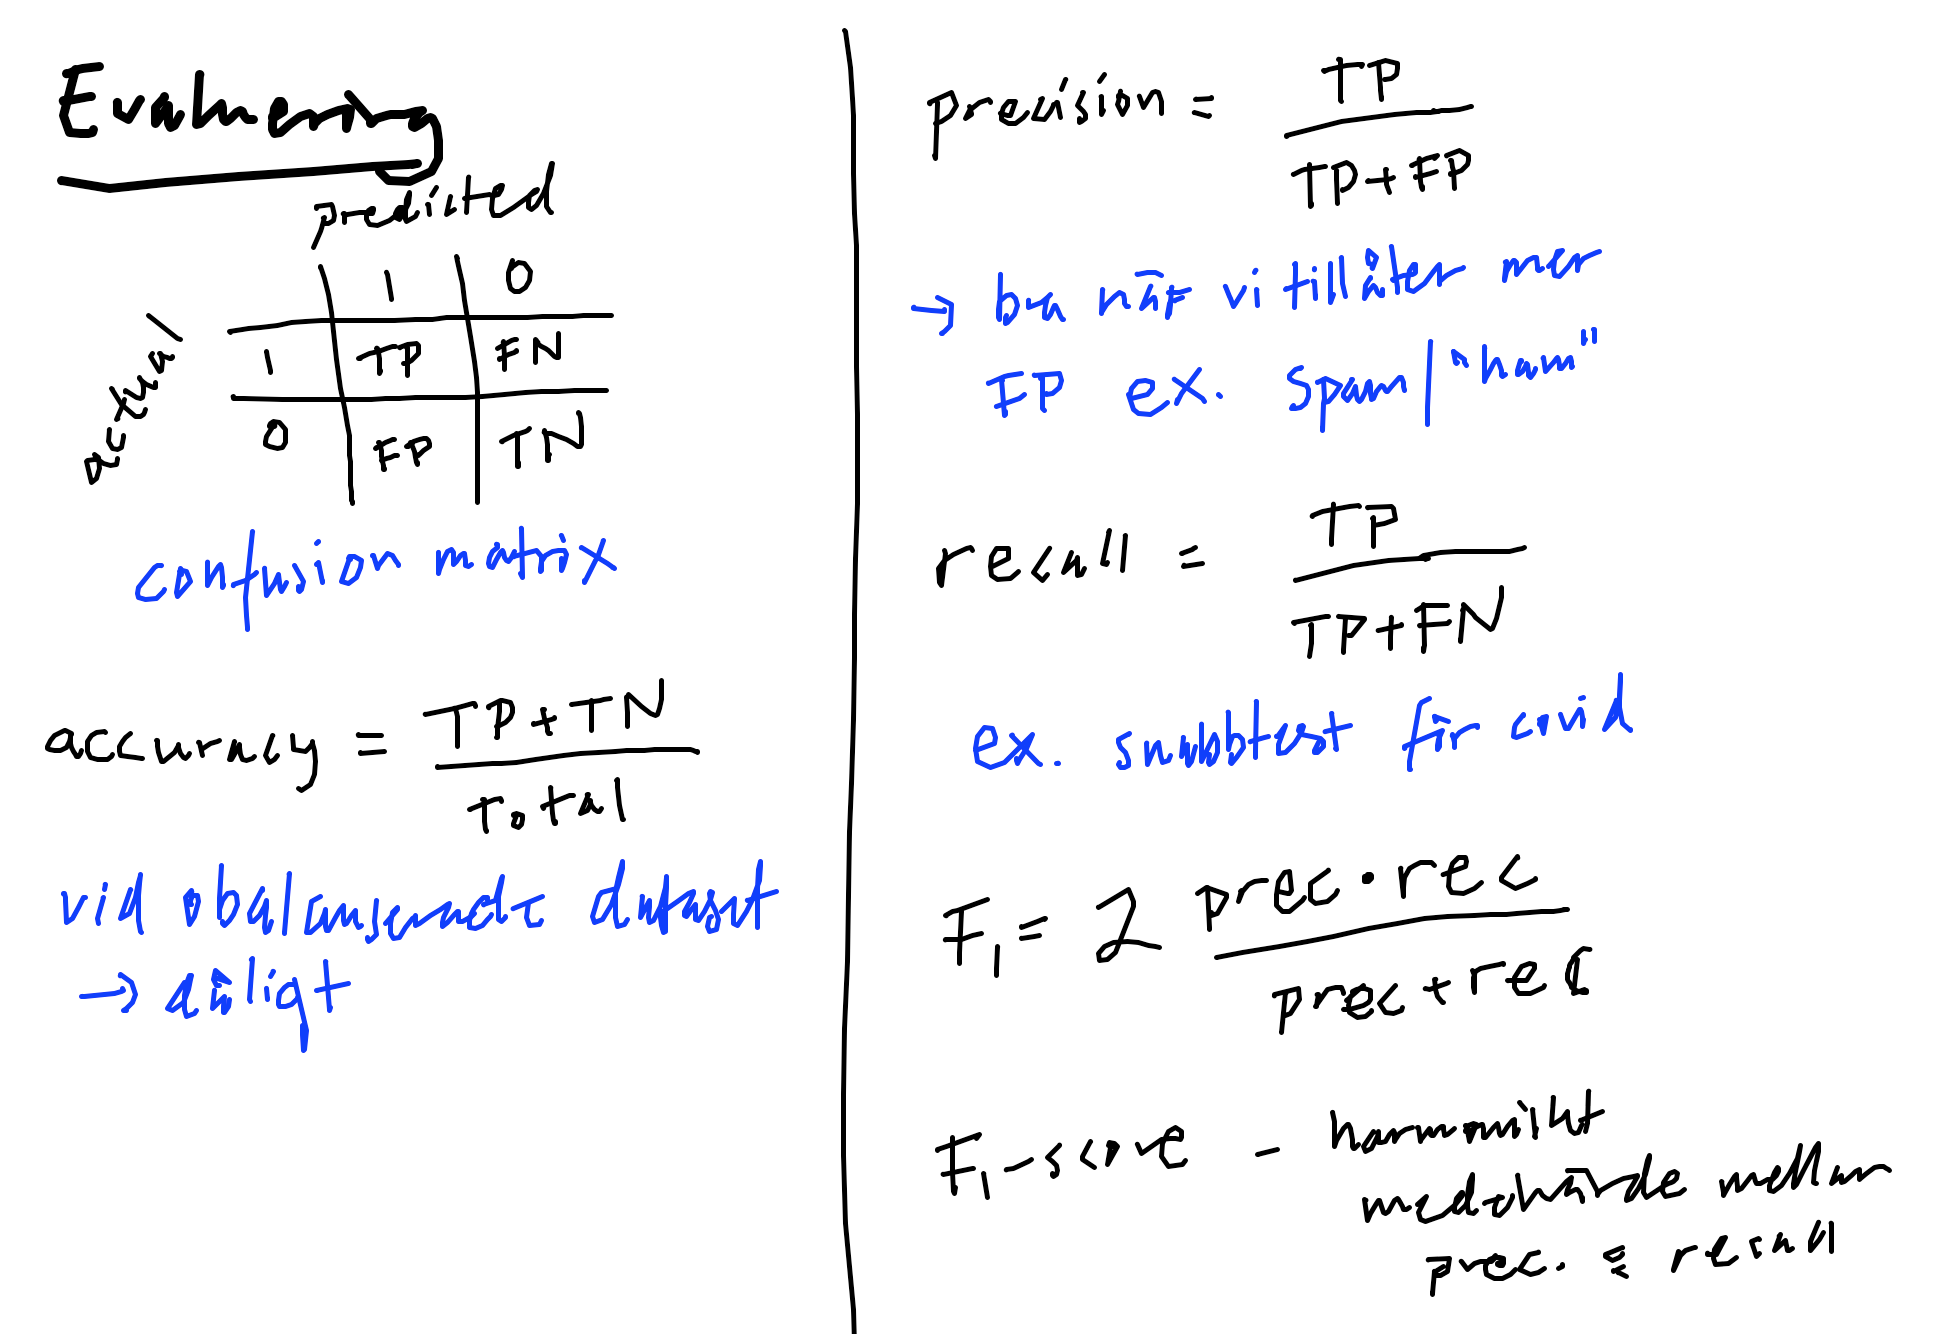 Evaluering
predicted
1 0
actual
1 TP FN
0 FP TN
confusion matrix
accuracy = TP+TN
Total
vid obalanserade dataset
→ dåligt
precision = TP
TP+FP
→ bra när vi tillåter mer
FP ex. spam/"ham"
recall = TP
TP+FN
ex. snabbtest för covid
F₁ = 2 prec·rec
prec+rec
F₁-score - harmoniskt
medelvärde mellan
prec. & recall